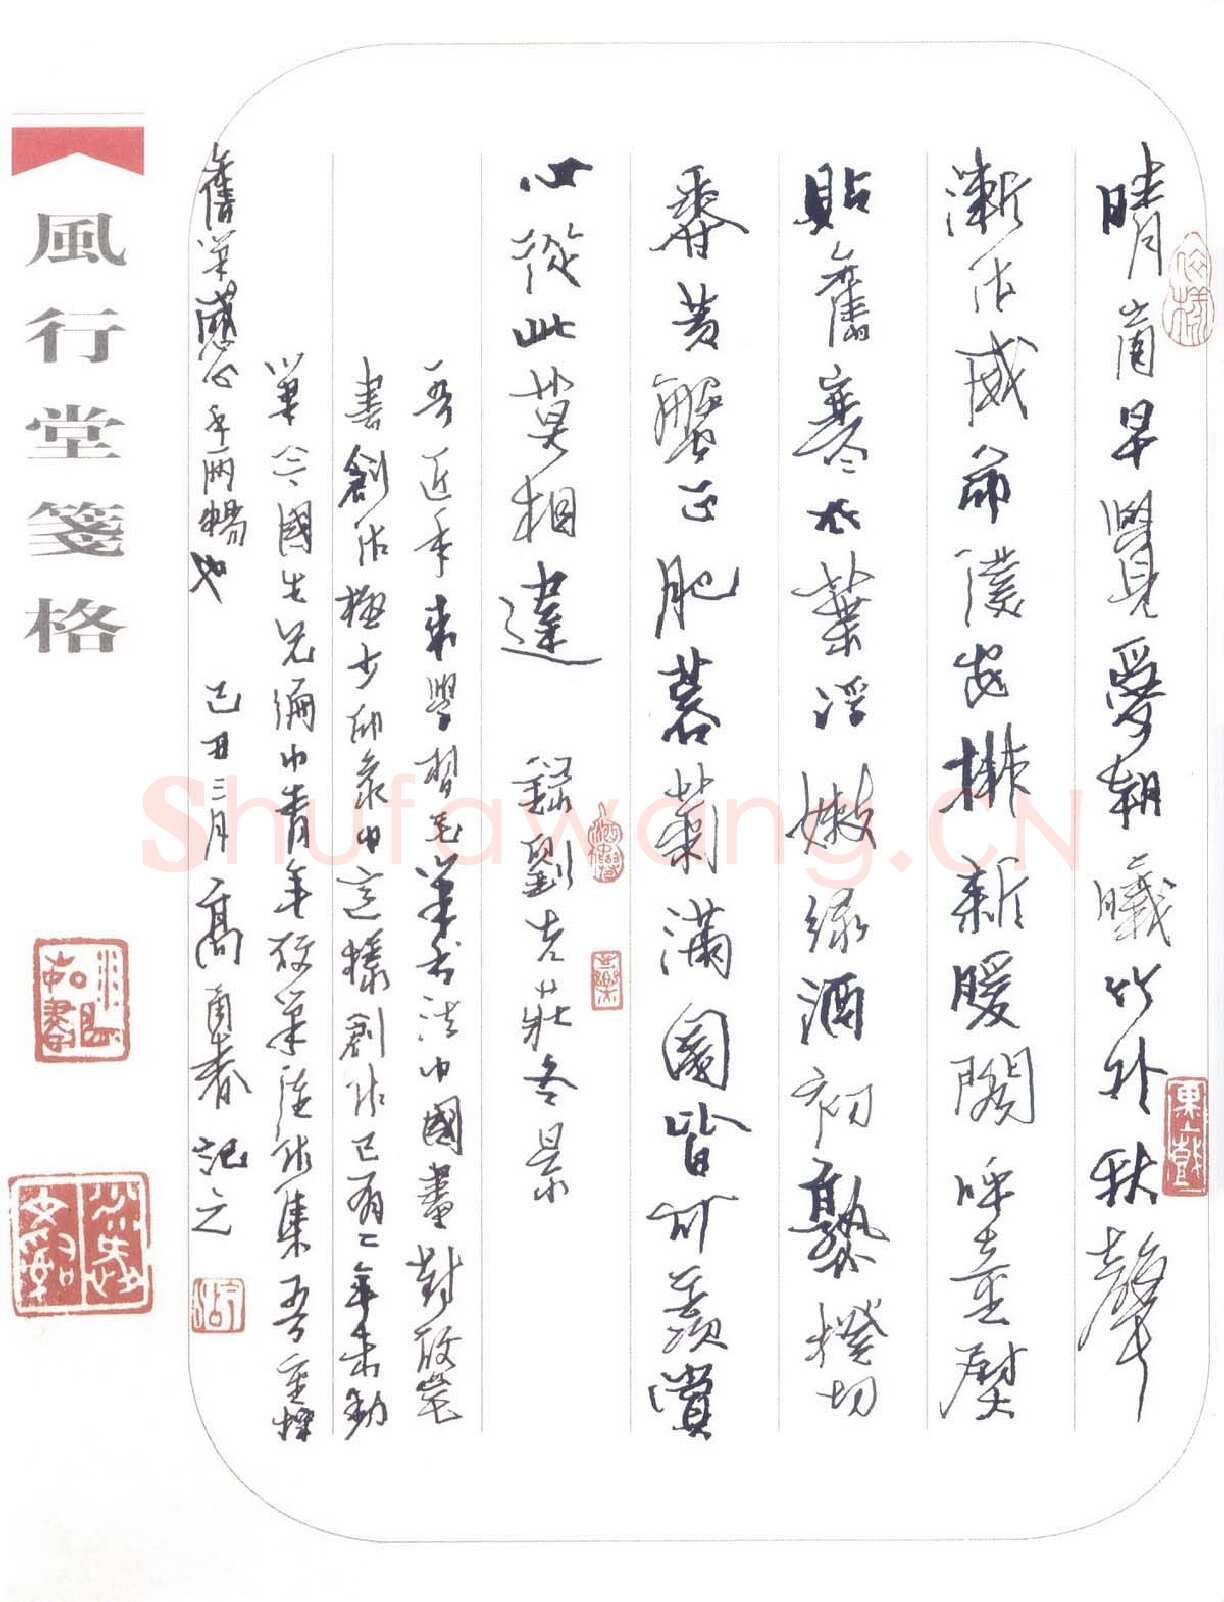 晴窗早覺愛朝曦竹外秋聲
漸作威命僕安排新暖閣呼童熨
貼舊寒衣葉浮嫩緑酒初熟橙切
香黄蟹正肥蓉菊滿園皆可羨賞
心從此莫相違 録劉克莊冬景
吾近年來學習毛筆書法中國畫對硬笔
書創作極少印象中這樣創作已有二年未動
筆今國生兄編中青年硬筆作集吾重操
舊筆感心手兩暢也 己丑三月高春記之
風行堂箋格
Shufawang.CN